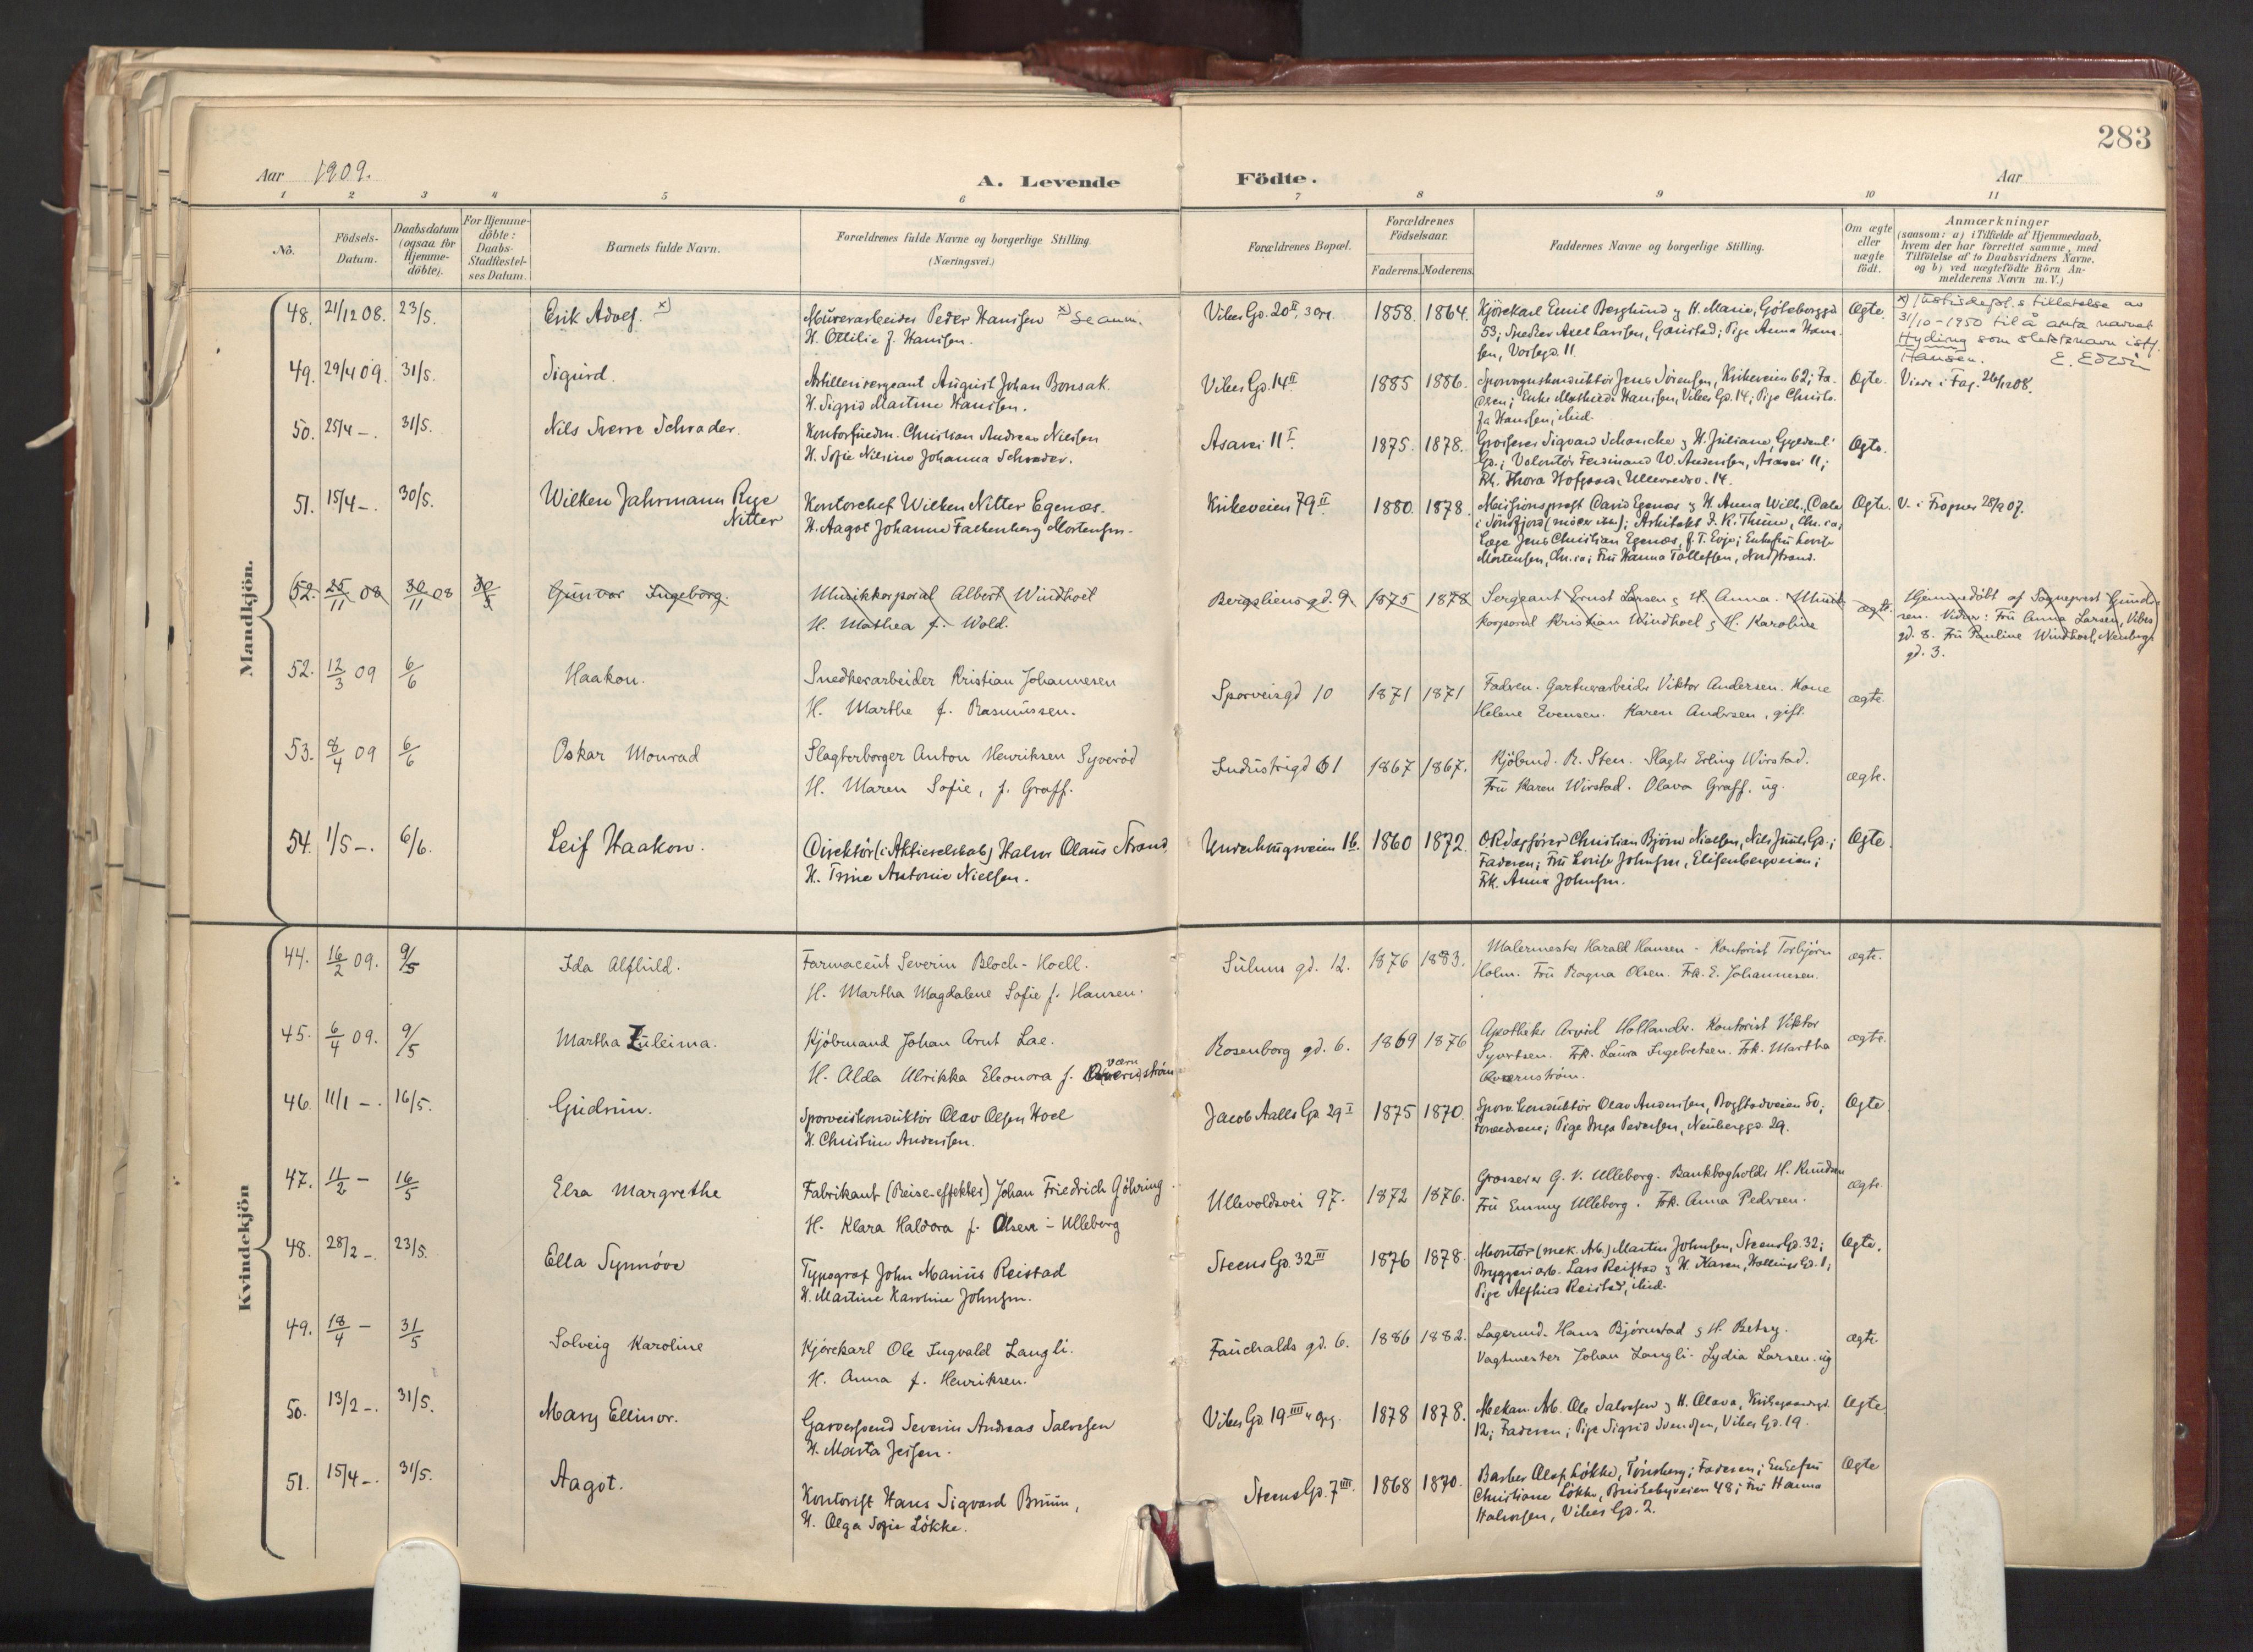 283
Aar 1909.
A. Levende Födte.
Aar
1 2 3 4 5 6 7 8 9 10 11
No.
Födsels-
Datum.
Daabsdatum
(ogsaa for
Hjemme-
döbte).
For Hjemme-
döbte:
Daabs-
Stadfæstel-
ses Datum.
Barnets fulde Navn.
Forældrenes fulde Navne og borgerlige Stilling.
(Næringsvei.)
Forældrenes Bopæl.
Forældrenes
Födselsaar.
Faderens. Moderens.
Faddernes Navne og borgerlige Stilling.
Om ægte
eller
uægte
födt.
Anmærkninger
(saasom: a) i Tilfælde af Hjemmedaab,
hvem der har forrettet samme, med
Tilföielse af to Daabsvidners Navne,
og b) ved uægtefödte Börn An-
melderens Navn m. V.)
Mandkjön.
48. 21/12 08. 23/5. Erik Adolf. x)
Murerarbeider Peder Hanssen x) se anm.
H. Ottilie f. Hanssen.
Vibes Gd. 20 II, 3 opg. 1858. 1864.
Kjörekarl Emil Berglund & H. Marie, Göteborggd
53; Snedker Axel Larssen, Gaustad; Pige Anna Hans-
sen, Vossegd. 11.
Ægte.
x) Justisdept.s tillatelse av
31/10-1950 til å anta navnet
Hyding som slektsnavn istf.
Hansen.
49. 29/4 09. 31/5. Sigurd.
Artillerisergeant August Johan Bonsak.
H. Sigrid Martine Hanssen.
Vibes Gd. 14 II 1885 1886.
Sporvognskonduktör Jens Sörensen, Kirkeveien 62; Fa-
deren; Enke Mathilde Hanssen, Vibes Gd. 14; Pige Christo-
fa Hanssen, ibid.
Ægte. Viede i Fag. 26/12 08.
50. 25/4 -. 31/5. Nils Sverre Schrader.
Kontorfuldm. Christian Andreas Nielsen
H. Sofie Nilsine Johanna Schrader.
Asavei 11 I. 1875. 1878.
Grosserer Sigvard Schancke & H. Juliane, Gyldenl.
Gd.; Volontör Ferdinand W. Andersen, Asavei 11;
Frk. Thora Hofgaard, Ullevoldsv. 14.
Ægte.
51. 15/4 -. 30/5. Wilken Jahrmann Rye
Nitter
Kontorchef Wilken Nitter Egenæs.
H. Aagot Johanne Falkenberg Mortensen.
Kirkeveien 79 II. 1880. 1878.
Missionsprest David Egenæs & H. Anna Wilh., Dale
i Söndfjord; Arkitekt I. K. Thune, Chr.ia;
Læge Jens Christian Egenæs, Evje; Enkefru Lovise
Mortensen, Chr.ia; Fru Hanna Tollefsen, Nordstrand.
Ægte. V. i Frogner 28/9 07.
(52. 25/11 08 30/11 08 30/5 Gunvor Ingeborg.
Musikkorporal Albert Windhoel
H. Mathea f. Wold.
Bergsliens gd. 9. 1875 1878
Sergeant Ernst Larsen & H. Anna. Musik-
korporal Kristian Windhoel & H. Karoline
ægte.
Hjemmedöbt af Sogneprest Gunder-
sen. Vidner: Fru Anna Larsen, Vibes
gd. 8. Fru Pauline Windhoel, Neubergs
gd. 3.
52. 12/3 09 6/6 Haakon.
Snedkerarbeider Kristian Johannesen
H. Marthe f. Rasmussen.
Sporveisgd 10 1871 1871
Fadren. Gartnerarbeider Viktor Andersen. Kone
Helene Evensen. Karen Andersen, gift.
ægte.
53. 8/4 09 6/6 Oskar Monrad
Slagterborger Anton Henriksen Syveröd
H. Maren Sofie, f. Graff.
Industrigd 61 1867 1867.
Kjöbmd. R. Steen. Slagter Erling Wirstad.
Fru Karen Wirstad. Olava Graff, ug.
ægte.
54. 1/5 -. 6/6. Leif Haakon.
Direktör (i Aktieselskab) Halvor Olaus Strand
H. Trine Antonie Nielsen.
Underhaugsveien 1b. 1860 1872.
O.R.Sagförer Christian Björn Nielsen, Nils Juels Gd.;
Faderen; Fru Louise Johnsen, Elisenbergveien;
Frk. Anna Johnsen.
Ægte.
Kvindekjön
44. 16/2 09. 9/5 Ida Alfhild.
Farmaceut Severin Bloch-Hoell.
H. Martha Magdalene Sofie f. Hansen.
Sulums gd. 12. 1876 1883.
Malermester Harald Hansen - Kontorist Torbjörn
Holm. Fru Ragna Olsen. Frk. E. Johannesen.
ægte.
45. 6/4 09. 9/5 Martha Zuleima.
Kjöbmand Johan Arnt Lae.
H. Alda Ulrikka Eleonora f. Qværnström
værn
Rosenborg gd. 6. 1869 1876
Apotheker Arvid Hollander. Kontorist Viktor
Syvertsen. Frk. Laura Ingebretsen. Frk. Martha
Qvernström.
ægte.
46. 11/1 -. 16/5. Gudrun.
Sporveiskonduktör Olav Olsen Hoel
H. Christine Andersen.
Jacob Aalls Gd 29 I 1875 1870.
Sporv. konduktör Olav Anderssen, Bogstadveien 50;
Forældrene; Pige Inga Pedersen, Neuberggd. 29.
Ægte
47. 11/2 - 16/5 Elsa Margrethe
Fabrikant (Reise-effekter) Johan Friedrich Göhring.
H. Klara Haldora f. Olsen - Ulleberg
Ullevoldsvei 97. 1872 1876.
Grosserer G. V. Ulleborg. Bankbogholder H. Knudsen
Fru Emmy Ulleborg. Frk. Anna Pedersen.
ægte.
48. 28/2 -. 23/5. Ella Synnöve
Typograf John Marius Reistad
H. Martine Karoline Johnsen.
Steens Gd. 32 III 1876 1878.
Montör (mek. Arb.) Martin Johnsen, Steens Gd. 32;
Bryggeriarb. Lars Reistad & H. Karen, Hallings Gd. 1;
Pige Alfhild Reistad, ibid.
Ægte.
49. 18/4 - 31/5 Solveig Karoline
Kjörekarl Ole Ingvald Langli.
H. Anna f. Henriksen.
Fauchalds gd. 6. 1886 1882.
Lagermd. Hans Björnstad & H. Betsy.
Vagtmester Johan Langli. Lydia Larsen. ug
ægte.
50. 13/2 -. 31/5. Mary Ellinor.
Garversvend Severin Andreas Salvesen
H. Marta Jessen.
Vibes Gd. 19 IIII 4 Opg. 1878 1878.
Mekan. Arb. Ole Salvesen & H. Olava,
12; Faderen; Pige Sigrid Svendsen, Vibes Gd. 19.
Ægte.
51. 15/4 -. 31/5. Aagot.
Kontorist Hans Sigvard Bruun,
H. Olga Sofie Lökke.
Steens Gd. 7 III. 1868 1870.
Barber Olaf Lökke, Tönsberg; Faderen; Enkefru
Christiane Lökke, Briskebyveien 48; Fru Hanna
Halvorsen, Vibes Gd. 2.
Ægte